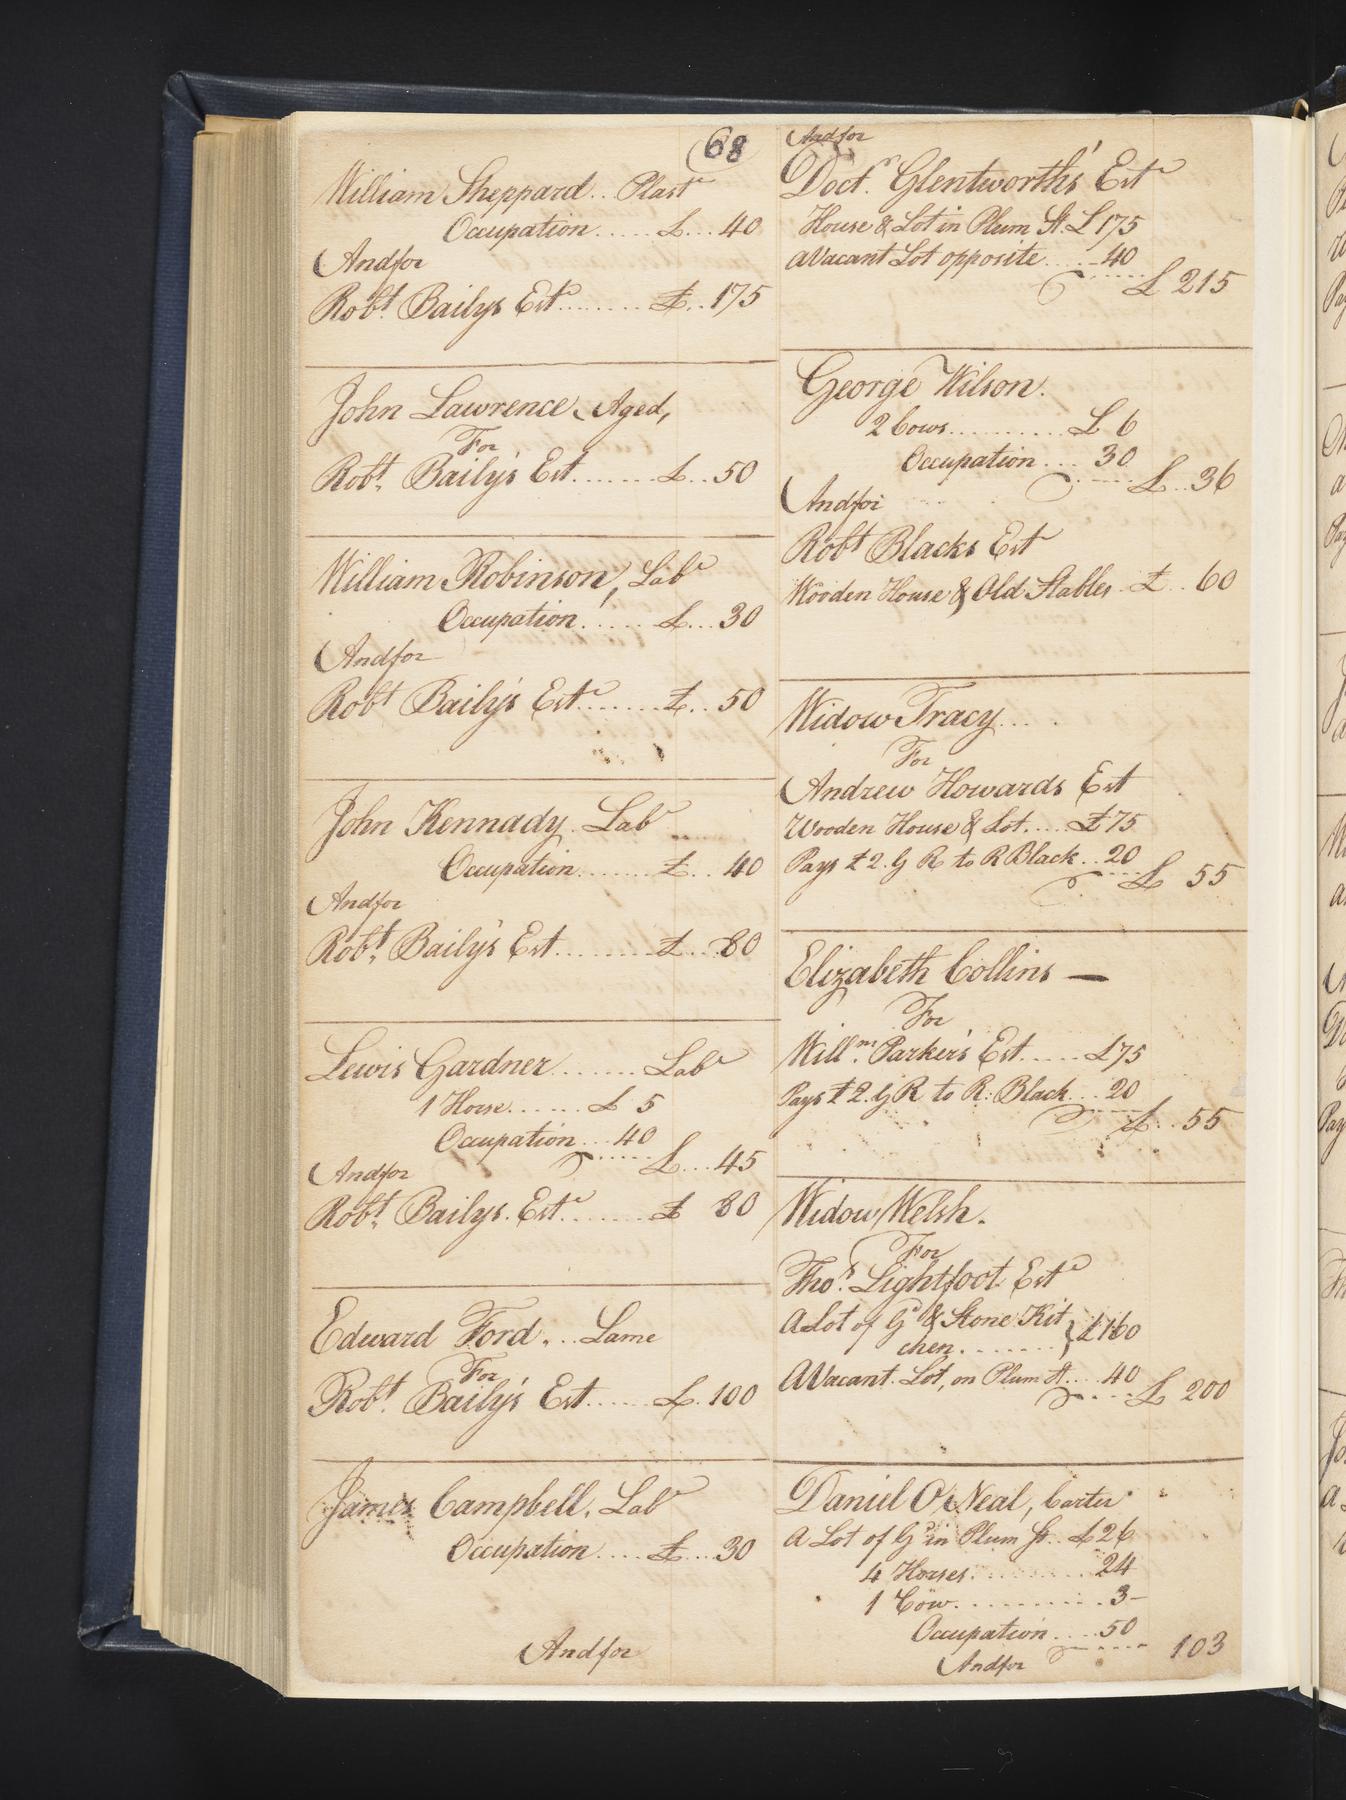 68
William Sheppard.. Plastr
Occupation..... £... 40
And for
Robt. Bailys Este........ £.. 175
John Lawrence, Aged,
For
Robt. Baily's Est....... £.. 50
William Robinson, Labr
Occupation...... £... 30
And for
Robt Baily's Este....... £.. 50
John Kennady. Labr
Occupation....... £.. 40
And for
Robt. Baily's Est........ £... 80
Lewis Gardner....... Labr
1 Horse...... £ 5
Occupation... 40
£... 45
And for
Robt. Bailys. Este....... £ 80
Edward Ford... Lame
For
Robt. Baily's Est...... £. 100
James Campbell. Labr
Occupation.... £... 30
And for
And for
Doctr. Glentworth's Este
House & Lot in Plum St. £ 175
a Vacant Lot opposite...... 40
£ 215
George Wilson.
2 Cows.......... £ 6
Occupation... 30
£.. 36
And for
Robt Blacks Este
Wooden House & Old Stables.. £.. 60
Widow Tracy....
For
Andrew Howards Est
Wooden House & Lot.... £75
Pays £2. G R to R Black.. 20
£ 55
Elizabeth Collins —
For
Willm. Parker's Est..... £75
Pays £2. G R to R. Black... 20
£.. 55
Widow Welsh.
For
Thos. Lightfoot. Este
A Lot of Gd & Stone Kit
chen....... } £160
A Vacant Lot, on Plum st... 40
£ 200
Daniel O'Neal, Carter
A Lot of Gd in Plum St.. £26
4 Horses......... 24
1 Cow........... 3-
Occupation.... 50
103
And for